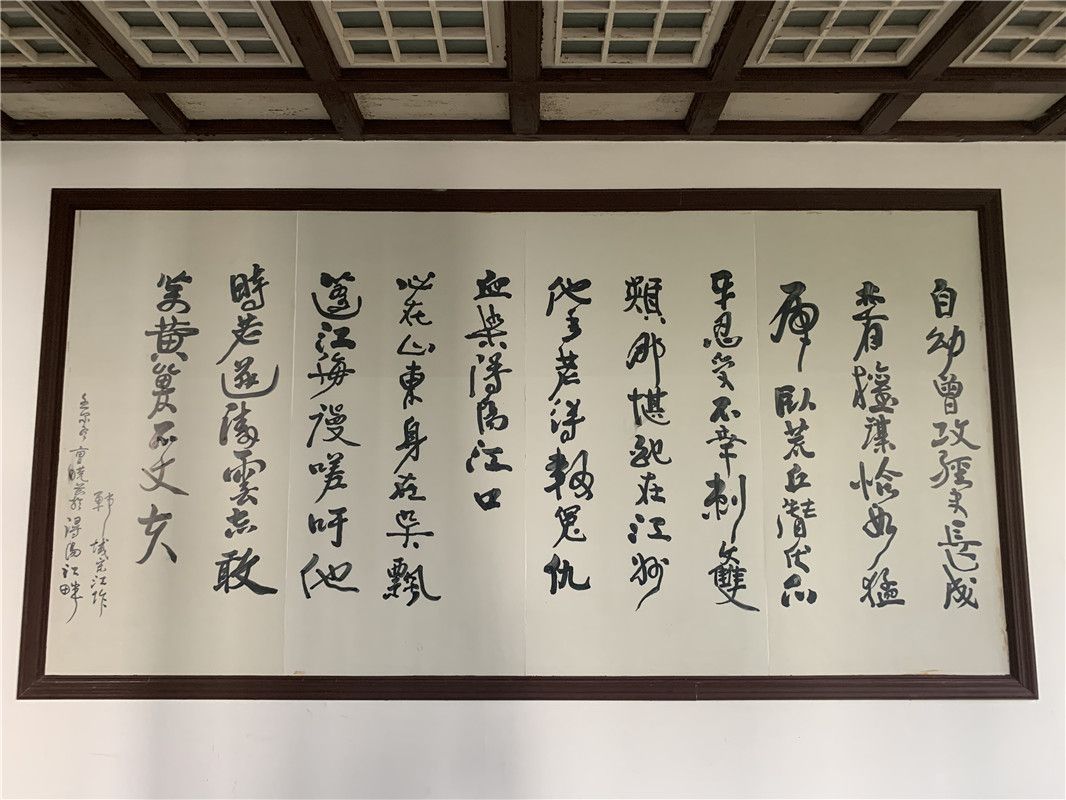 自幼曾攻經史長成
亦有權謀恰如猛
虎臥荒丘潛伏爪
牙忍受不幸刺雙
頰那堪配在江州
他年若得報冤仇
血染潯陽江口
心在山東身在吳飄
蓬江海謾嗟吁他
時若遂凌雲志敢
笑黃巢不丈夫
城宋江作
潯陽江畔